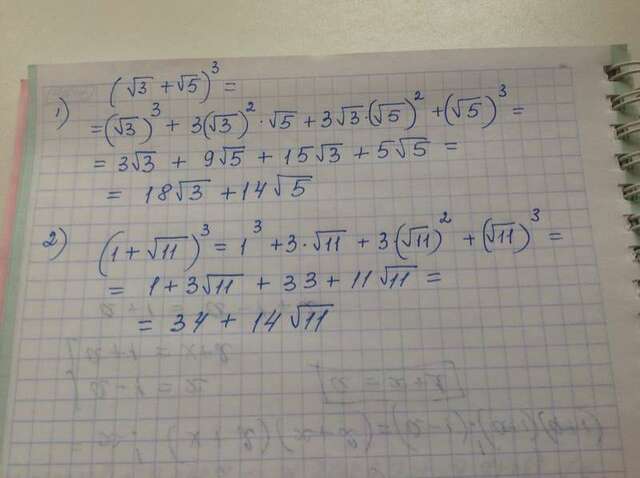 (√3 + √5)³ =
1) = (√3)³ + 3(√3)² · √5 + 3√3 · (√5)² + (√5)³ =
= 3√3 + 9√5 + 15√3 + 5√5 =
= 18√3 + 14√5
2) (1 + √11)³ = 1³ + 3 · √11 + 3(√11)² + (√11)³ =
= 1 + 3√11 + 33 + 11√11 =
= 34 + 14√11